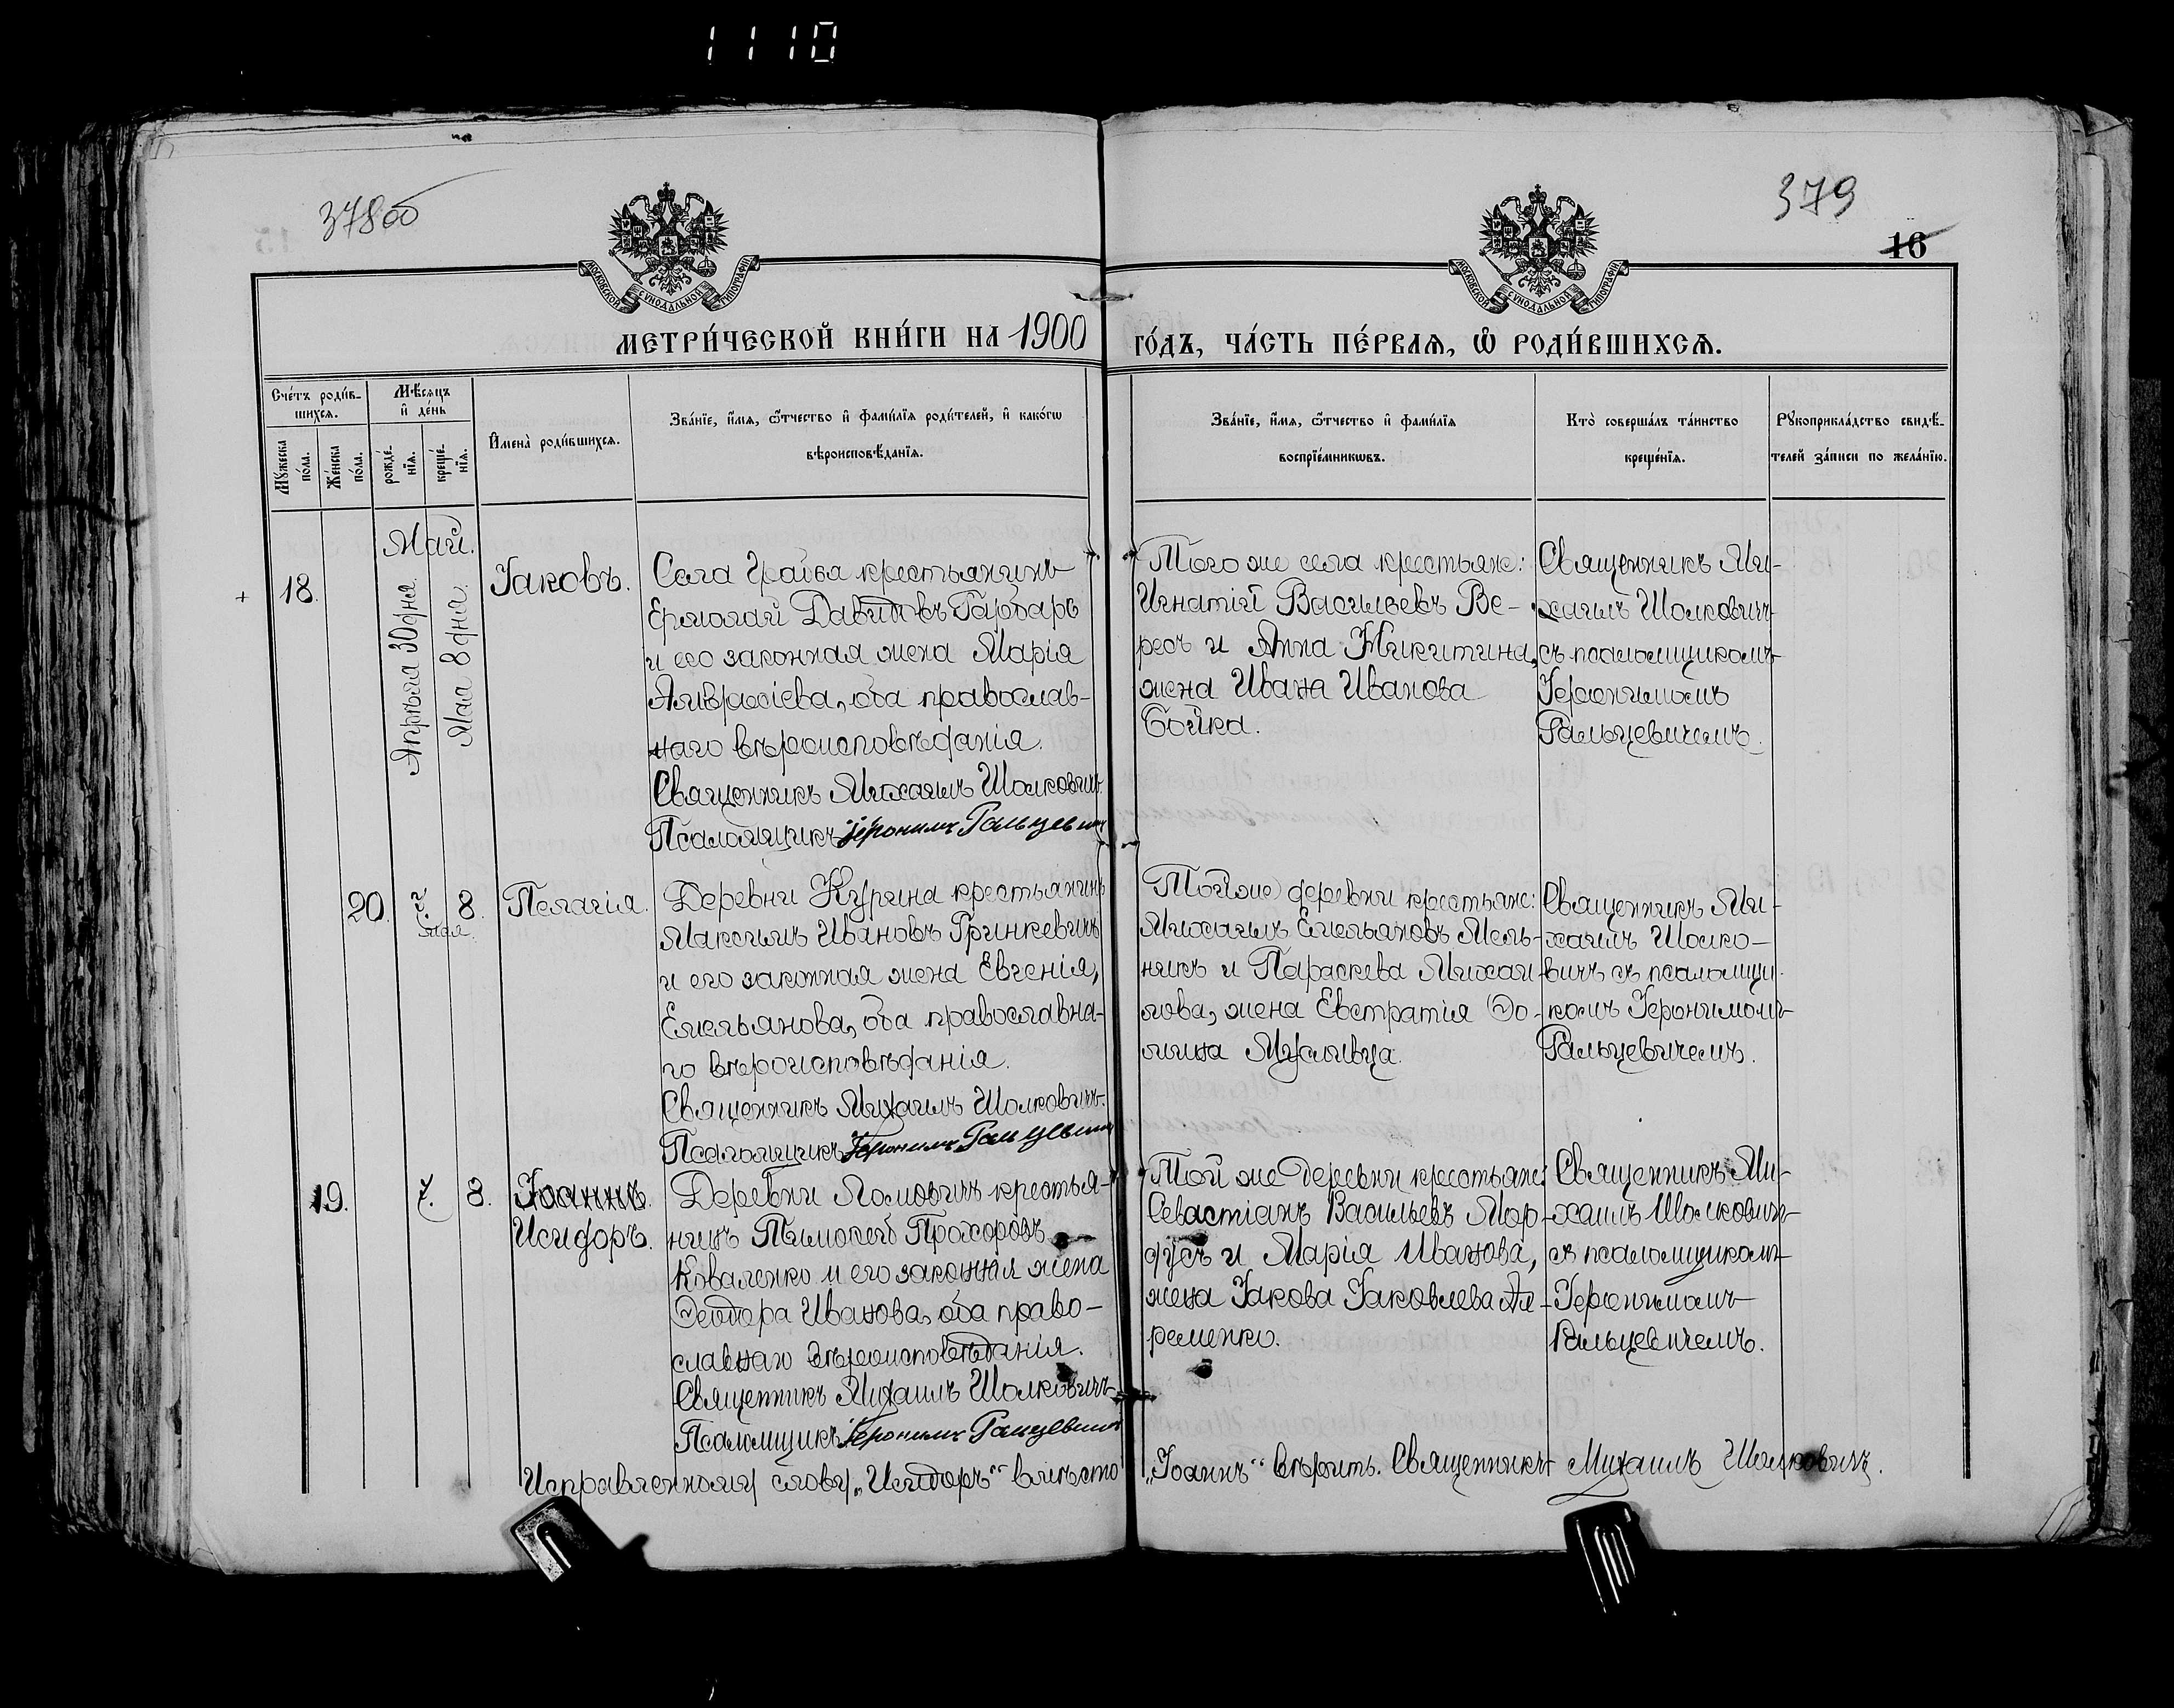 1110
378об
379
16
МОСКОВСКОЙ СѴНОДАЛЬНОЙ ТИПОГРАФІИ
МОСКОВСКОЙ СѴНОДАЛЬНОЙ ТИПОГРАФІИ
МЕТРИ́ЧЕСКОЙ КНИ́ГИ НА 1900
ГО́ДЪ, ЧА́СТЬ ПЕ́РВАЯ, Ѡ҆ РОДИ́ВШИХСѦ.
Сче́тъ роди́в-
шихсѧ.
Мꙋ́жеска
по́ла.
Же́нска
по́ла.
Мѣ́сѧцъ
и҆ де́нь
рожде́-
нїѧ.
креще́-
нїѧ.
И҆мена̀ роди́вшихсѧ.
Зва́нїе, и҆́мѧ, ѻ҆́тчество и҆ фами́лїѧ роди́телей, и҆ како́гѡ
вѣроисповѣ́данїѧ.
Зва́нїе, и҆́мѧ, ѻ҆́тчество и҆ фами́лїѧ
воспрїе́мникѡвъ.
Кто̀ соверша́лъ та́инство
креще́нїѧ.
Рꙋкоприкла́дство свидѣ́-
телей за́писи по жела́нїю.
Май.
18.
Апрѣля 30 дня.
Мая 8 дня.
Іаковъ.
Села Грабва крестьянинъ
Ермолай Давидовъ Гарбаръ
и его законная жена Марія
Амвросіева, оба православ-
наго вѣроисповѣданія.
Священникъ Михаилъ Шолковичъ
Псаломщикъ Іеронимъ Гальцевичъ
Того же села крестьяне:
Игнатій Васильевъ Ве-
ресъ и Анна Никитина,
жена Ивана Иванова
Бойка.
Священникъ Ми-
хаилъ Шолковичъ
съ псаломщикомъ
Іеронимомъ
Гальцевичемъ.
20.
7.
мая.
8.
Пелагія.
Деревни Курина крестьянинъ
Максимъ Ивановъ Гринкевичъ
и его законная жена Евгенія,
Емельянова, оба православна-
го вѣроисповѣданія.
Священникъ Михаилъ Шолковичъ
Псаломщикъ Іеронимъ Гальцевичъ
Той же деревни крестьяне:
Михаилъ Емельяновъ Мель-
никъ и Параскева Михаи-
лова, жена Евстратія Ѳо-
мина
Священникъ Ми-
хаилъ Шолко-
вичъ съ псаломщи-
комъ Іеронимомъ
Гальцевичемъ.
19.
7.
8.
Іоаннъ.
Исидоръ.
Деревни Ломовичъ крестья-
нинъ Тимоѳей Прохоровъ
Коваленко и его законная жена
Ѳеодора Иванова, оба право-
славнаго вѣроисповѣданія.
Священникъ Михаилъ Шолковичъ
Псаломщикъ Іеронимъ Гальцевичъ
Той же деревни крестьяне:
Севастіанъ Васильевъ Мар-
дусь и Марія Иванова,
жена Іакова Іаковлева Яе-
ременко.
Священникъ Ми-
хаилъ Шолковичъ
съ псаломщикомъ
Іеронимомъ
Гальцевичемъ.
Исправленному слову „Исидоръ“ вмѣсто
„Іоаннъ“ вѣрить. Священникъ Михаилъ Шолковичъ.